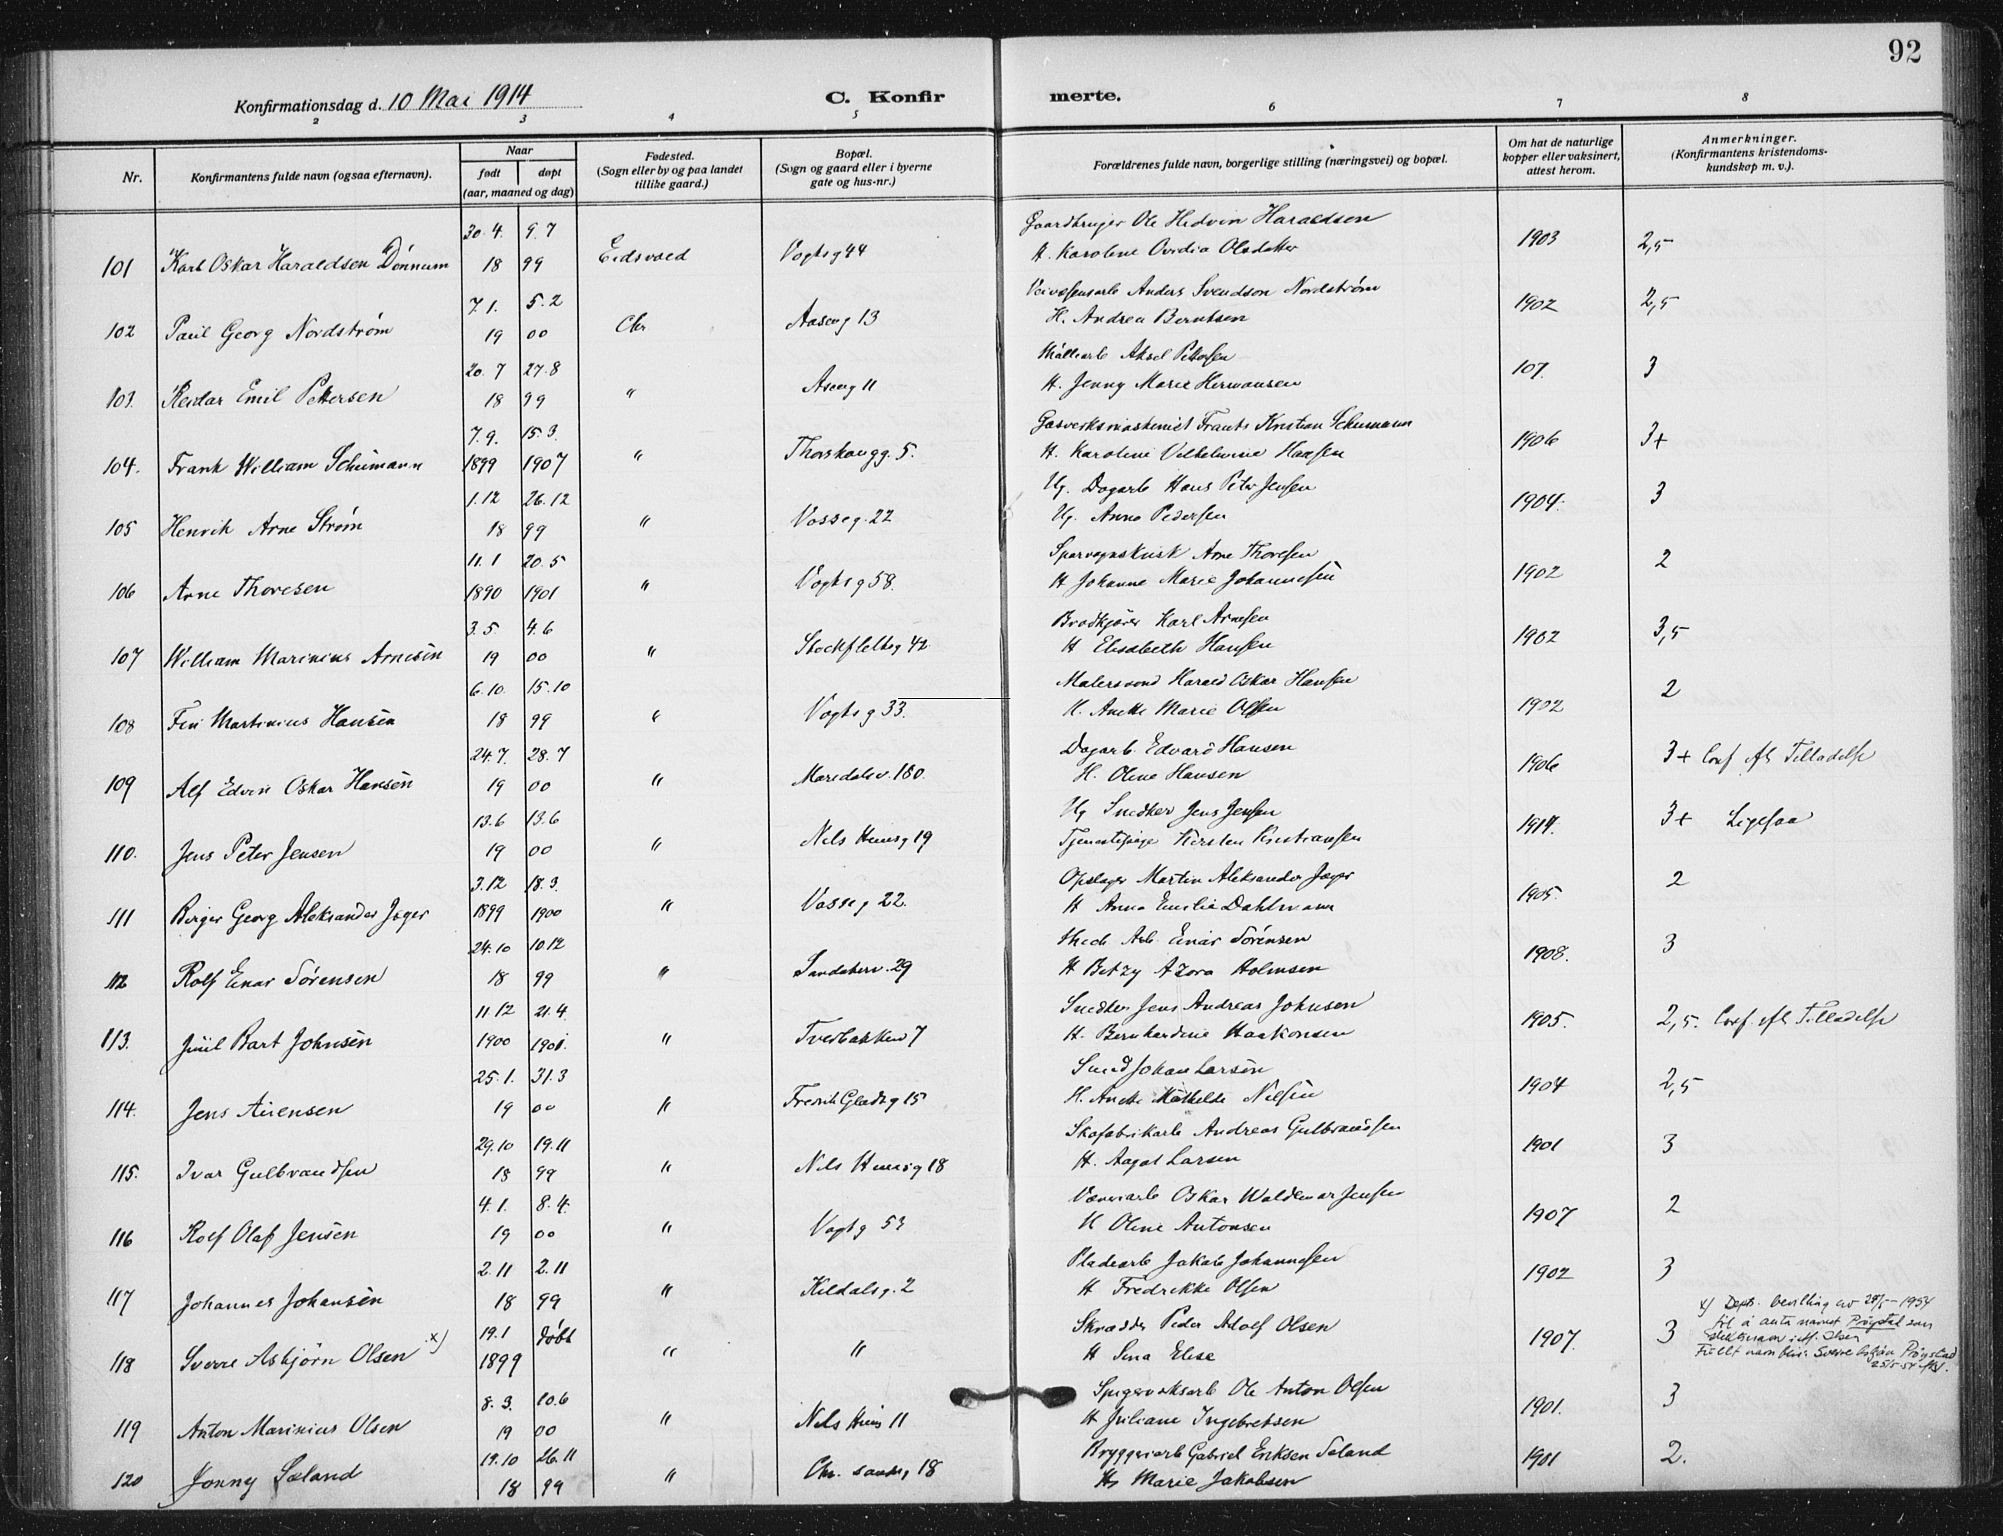 92
Konfirmationsdag d. 10 Mai 1914 C. Konfirmerte.
2 3 4 5 6 7 8
Nr. Konfirmantens fulde navn (ogsaa efternavn). Naar født døpt (aar, maaned og dag) Fødested. (Sogn eller by og paa landet tillike gaard.) Bopæl. (Sogn og gaard eller i byerne gate og hus-nr.) Forældrenes fulde navn, borgerlige stilling (næringsvei) og bopæl. Om hat de naturlige kopper eller vaksinert, attest herom. Anmerkninger. (Konfirmantens kristendomskundskap m. v.).
30.4. 9.7 Gaardbruger Ole Hedvin Haraldsen
101 Karl Oskar Haraldsen Dønnum 18 99 Eidsvold Vogtsg 44 H. Karoline Ovidia Olsdatter 1903 2,5
7.1. 5.2 Veivæsensarb Anders Svendson Nordstrøm
102 Paul Georg Nordstrøm 19 00 Chr Aaseng 13 H. Andrea Berntsen 1902 2,5
20.7 27.8 Aksel Pettersen
103. Reidar Emil Pettersen 18 99 " Aseng 11 H. Jenny Marie Hermansen 107. 3
7.9. 15.3. Gasverksmaskinist Frants Kristian Schumann
104. Frank William Schumann 1899 1907 " Thorshaugg. 5. H. Karoline Vilhelmine Hansen 1906 3+
1.12 26.12 Ug. Dagarb Hans Peter Jensen
105 Henrik Arne Strøm 18 99 " Vosseg. 22 Ug. Anna Pedersen 1904. 3
11.1 20.5 Sporvognskusk Arne Thoresen
106 Arne Thoresen 1890 1901 " Vogtsg 58. H Johanne Marie Johannesen 1902 2
3.5. 4.6 Brødkjører Karl Arnesen
107 William Marinius Arnesen 19 00 " Stockfletsg 42 H Elisabeth Hansen 1902 3,5
6.10. 15.10 Malersvend Harald Oskar Hansen
108 Fin Martinius Hansen 18 99 " Vogtsg 33. H. Anette Marie Olsen 1902 2
24.7. 28.7 Dagarb. Edvard Hansen
109 Alf Edvin Oskar Hansen 19 00 " Maridalsv. 180. H. Oline Hansen 1906 3+ Conf. eft Tilladelse
13.6 13.6 Ug Snedker Jens Jensen
110. Jens Peter Jensen 19 00 " Nels Huusg 19 Tjenestepige Kirsten Kristiansen 1914. 3+ Ligesaa
3.12 18.3. Opslager Martin Aleksander Jæger
111 Birger Georg Aleksander Jæger 1899 1900 " Vosseg 22. H Anna Emilie Dahlmann 1905. 2
24.10 10.12 Arb. Einar Sørensen
112 Rolf Einar Sørensen 18 99 " Sandakerv. 29 H Betzy Azora Holmsen 1908. 3
11.12 21.4. Snedker Jens Andreas Johnsen
113. Juul Bart Johnsen 1900 1901. " Tvedbakken 7 H. Bernhardine Haakonsen 1905. 2,5. Conf. eft Tilladelse
25.1. 31.3 Smed Johan Larsen
114. Jens 19 00 " Fredrik Gladsg 15 H. Anette Mathilde Nielsen 1904 2,5
29.10 19.11 Skofabrikarb Andreas Gulbrandsen
115. Ivar Gulbrandsen 18 99 " Nils Huusg 18 H. Aagot Larsen 1901 3
4.1. 8.4. Væveriarb Oskar Waldemar Jensen
116 Rolf Olaf Jensen 19 00 " Vogtsg 53 H Oline Antonsen 1907 2
2.11 2.11 Pladearb Jakob Johannesen
117 Johannes Johansen 18 99 " Kildalsg. 2 H Fredrikke Olsen 1902 3
19.1 døbt Skrædder Peder Adolf Olsen
118 Sverre Asbjørn Olsen x) 1899 " " H Lina Elise 1907. 3
x) Depts. bevilling av 29/5-1954
til å anta navnet Prøystad som
slektsnavn istf. Olsen
Fullt navn blir: Sverre Asbjørn Prøystad
8.3. 10.6 Spigerverksarb Ole Anton Olsen
119 Anton Marinius Olsen 19 00 " Nils Huus 11 H Juliane Ingebretsen 1901. 3
19.10 26.11 Bryggeriarb Gabriel Eriksen Seland
120 Jonny Sæland 18 99 " Chr. 18 H Marie Jakobsen 1901 2.